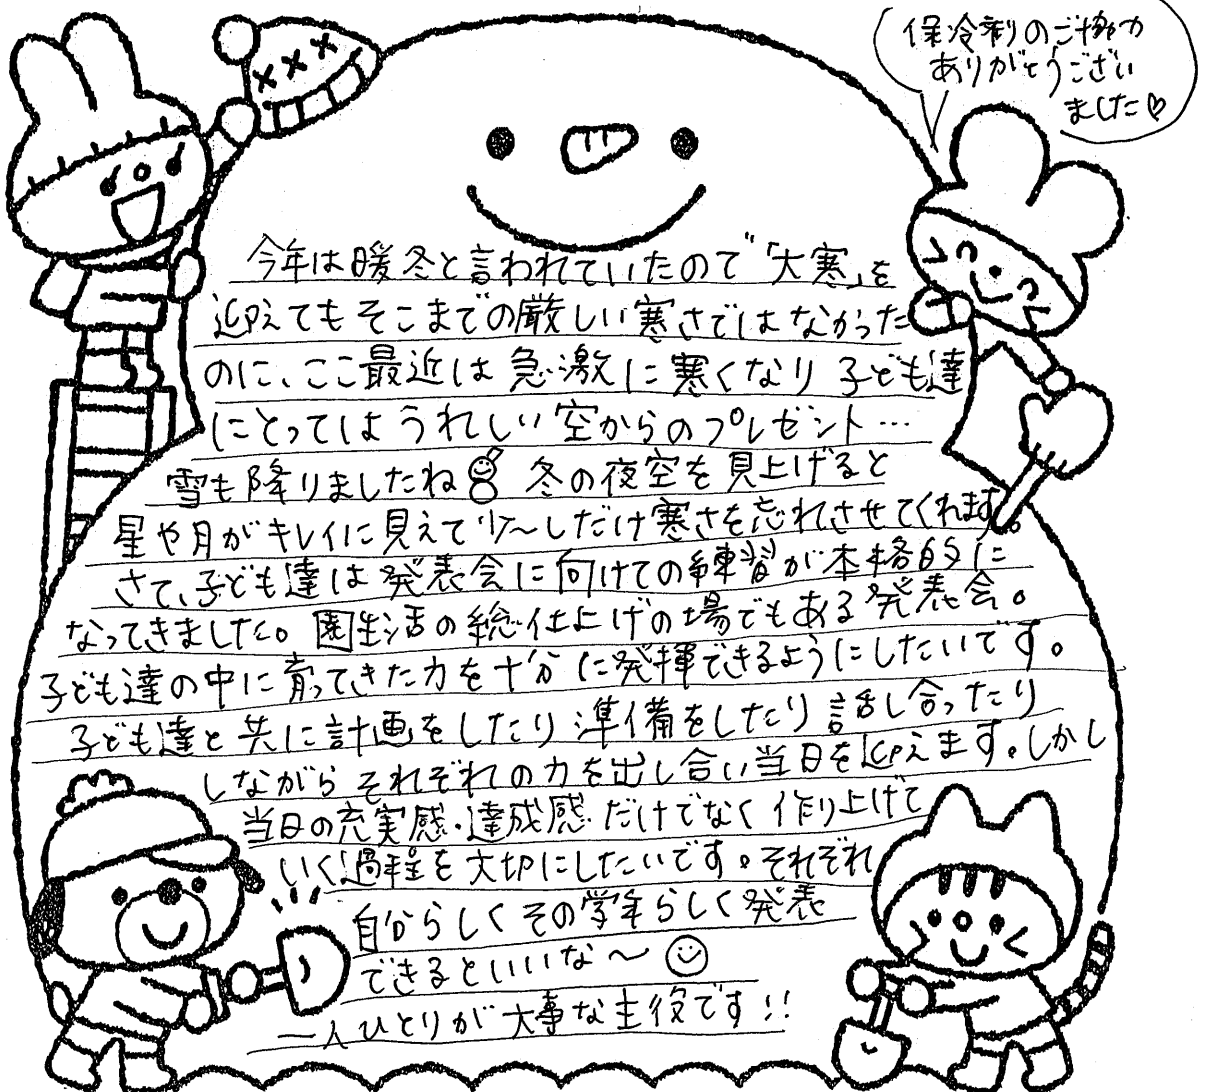 保冷剤のご協力
ありがとうござい
ました♡
今年は暖冬と言われていたので「大寒」を
迎えてもそこまでの厳しい寒さではなかった
のに、ここ最近は急激に寒くなり子ども達
にとってはうれしい空からのプレゼント…
雪も降りましたね 冬の夜空を見上げると
星や月がキレイに見えて少〜しだけ寒さを忘れさせてくれます。
さて、子ども達は発表会に向けての練習が本格的に
なってきました。園生活の総仕上げの場でもある発表会。
子ども達の中に育ってきた力を十分に発揮できるようにしたいです。
子ども達と共に計画をしたり準備をしたり話し合ったり
しながらそれぞれの力を出し合い当日を迎えます。しかし
当日の充実感・達成感だけでなく作り上げて
いく過程を大切にしたいです。それぞれ
自分らしくその学年らしく発表
できるといいな〜
一人ひとりが大事な主役です!!